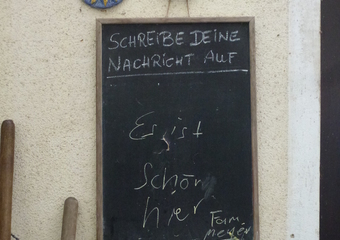 SCHREIBE DEINE
NACHRICHT AUF
Es ist
Schön
hier